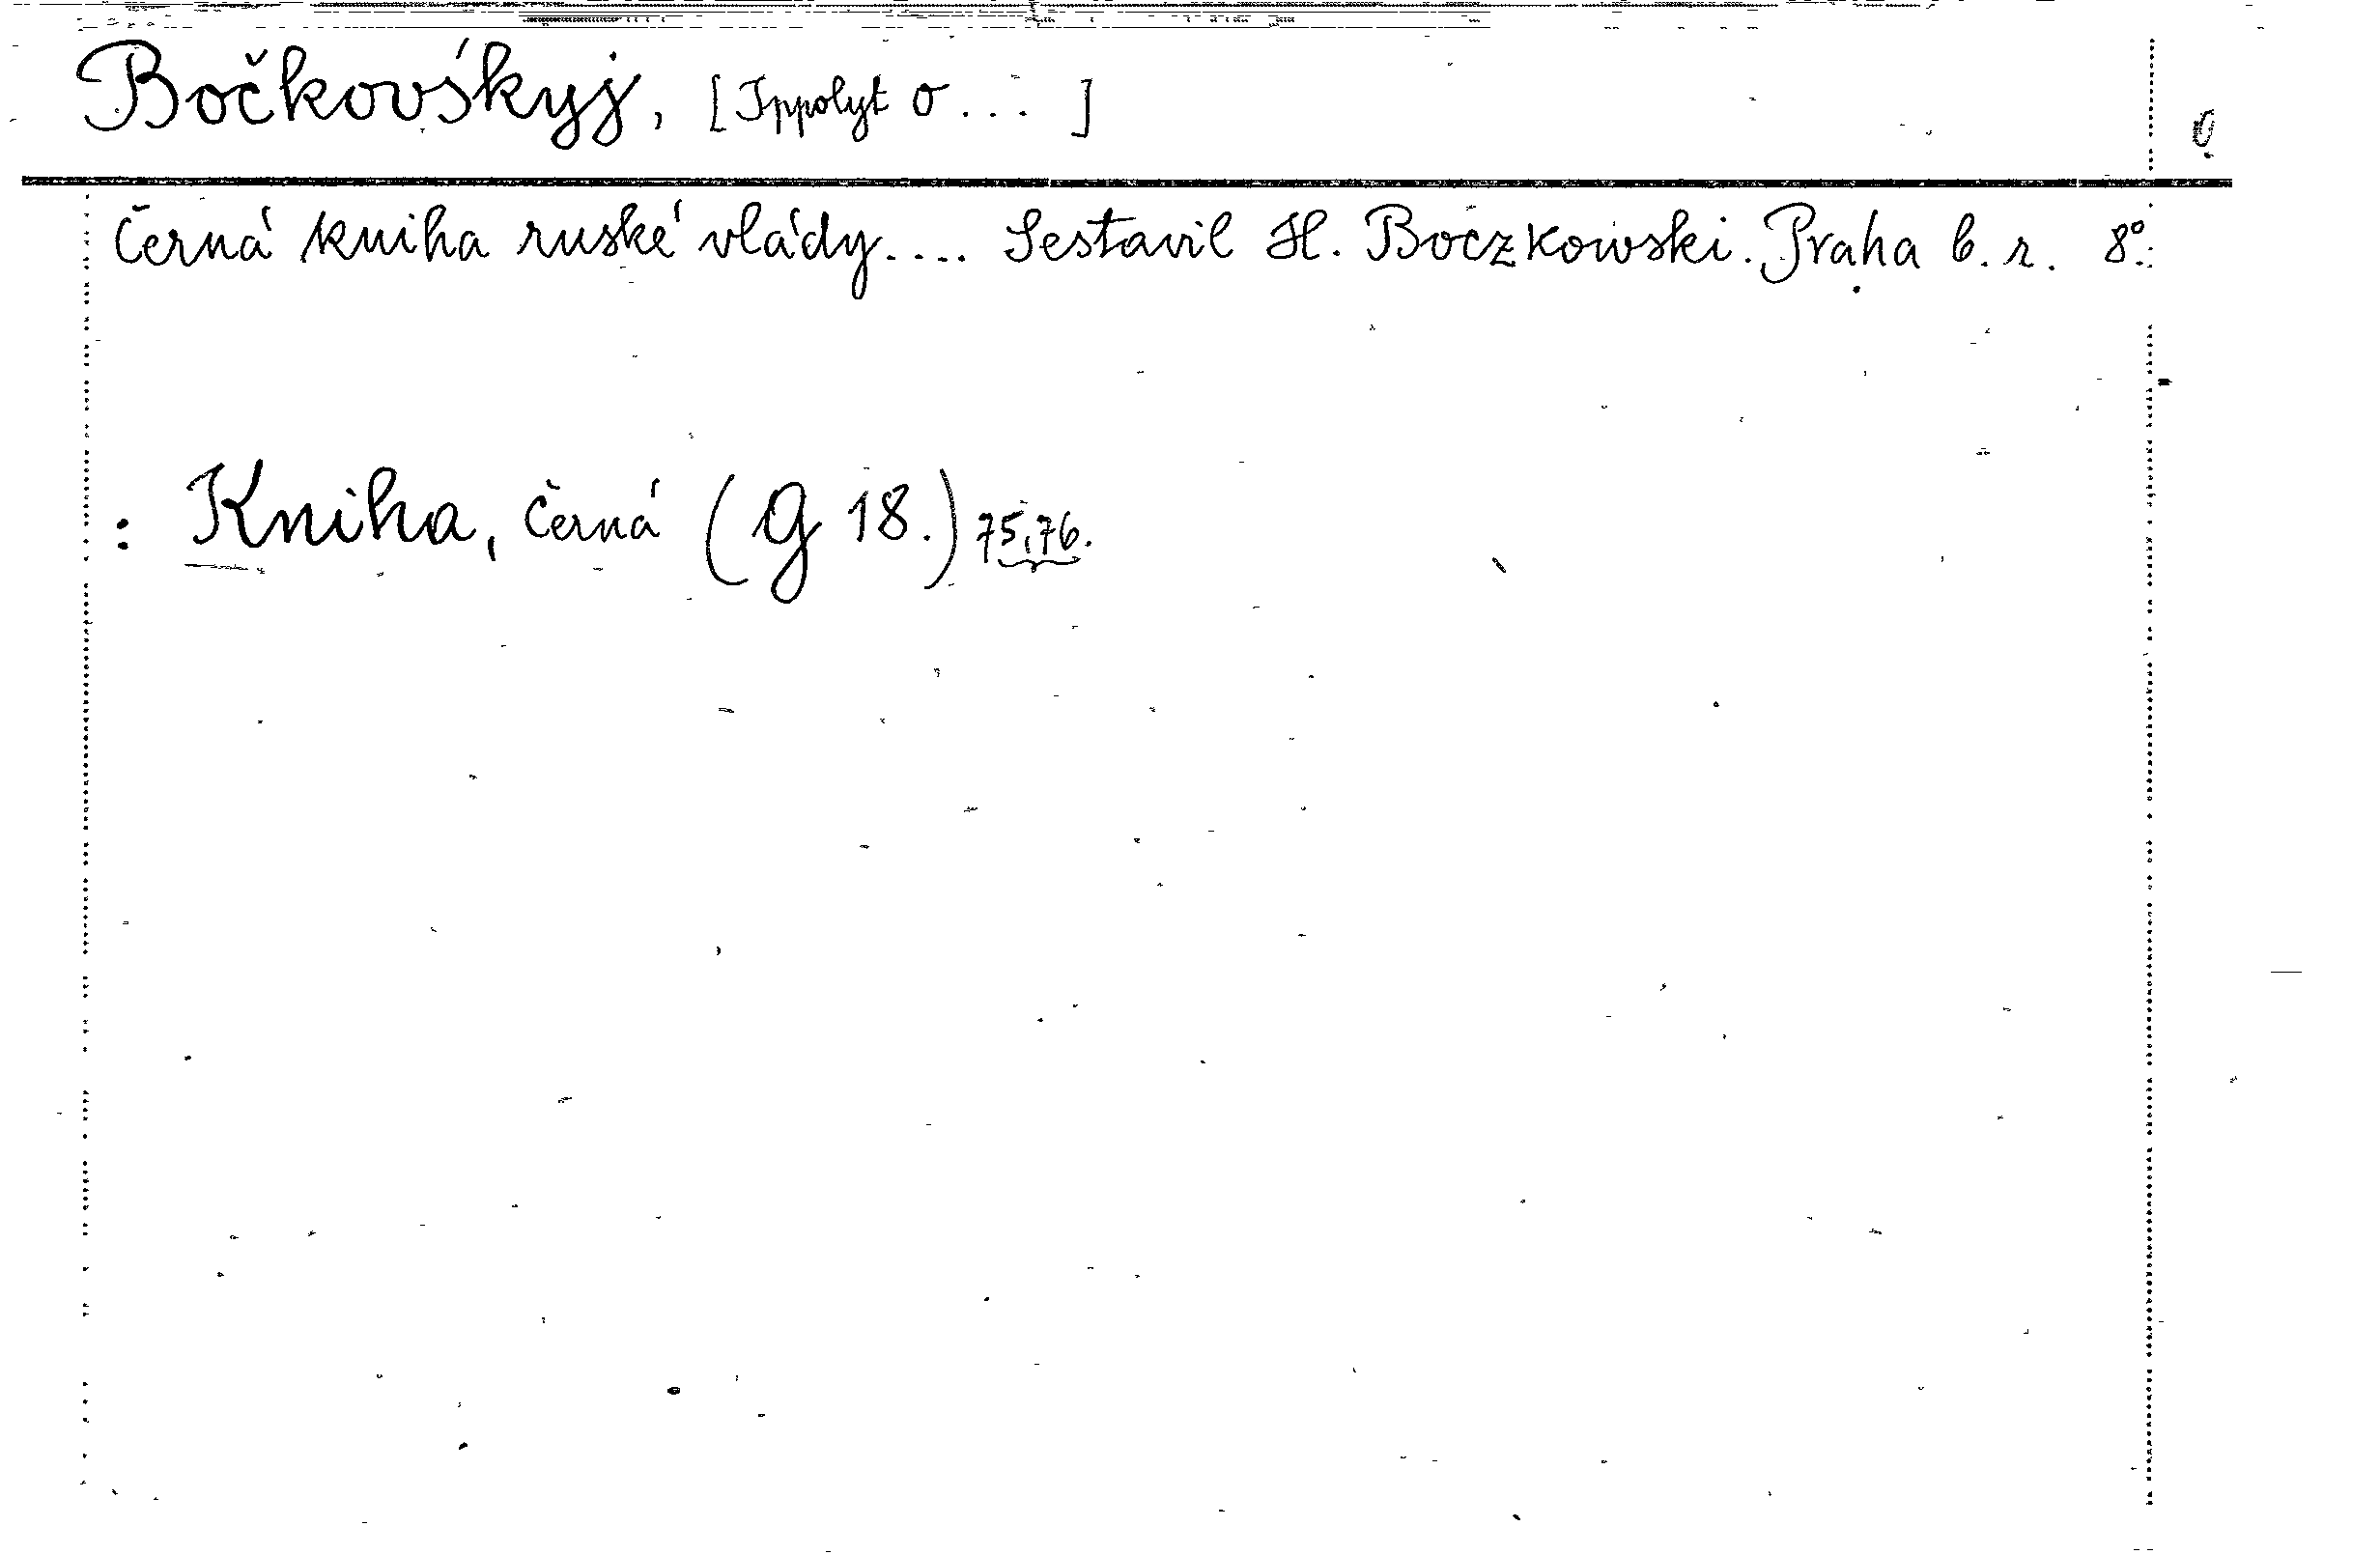 Bočkovśkyj, [Ippolyt O...]
Černá kniha ruské vlády.... Sestavil H. Boczkowski. Praha b. r. 8°.
: Kniha, černá (G 18.) 75,76.